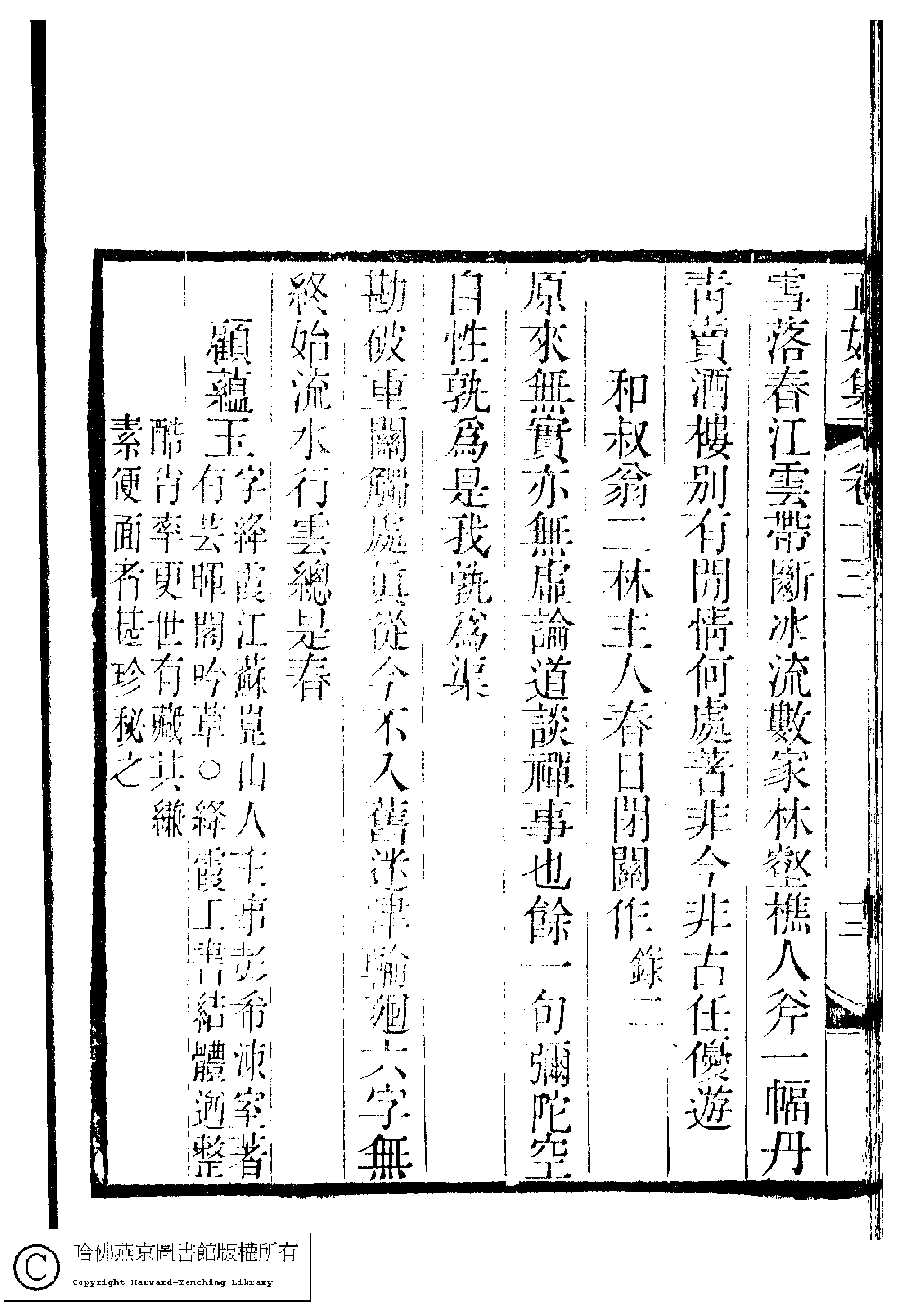 正始集 卷十三 三
雪落春江雲帶斷冰流數家林壑樵人斧一幅丹
靑賣酒樓別有閒情何處著非今非古任優遊
和叔翁二林主人春日閉關作錄二
原來無實亦無虛論道談禪事也餘一句彌陀空
自性孰爲是我孰爲渠
勘破重關觸處眞從今不入舊迷津輪廻六字無
終始流水行雲總是春
顧蘊玉
字絳霞江蘇崑山人主事彭希涑室著
有芸暉閣吟草○絳霞工書結體遒整
酷肖率更世有藏其縑
素便面者甚珍秘之
哈佛燕京圖書館版權所有
Copyright Harvard-Yenching Library